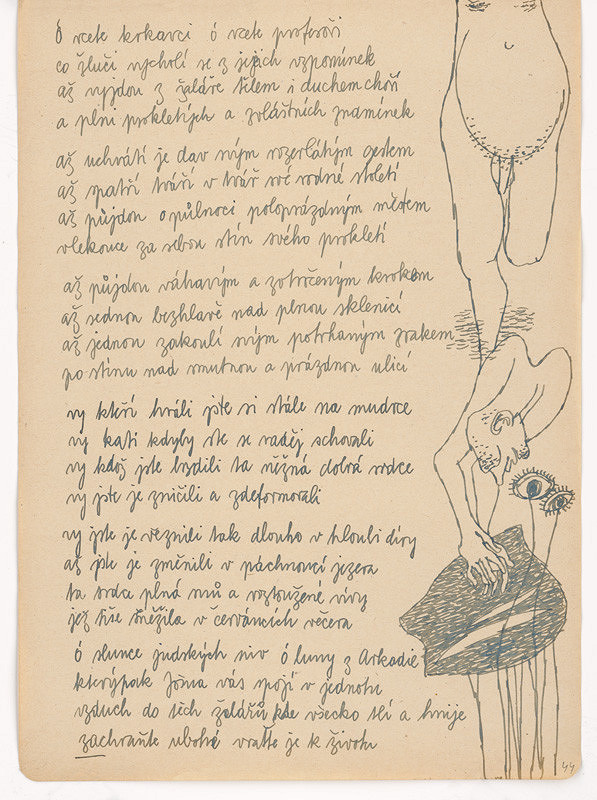 ó vcete krkavci ó vcete profesoři
co žluči vychrlí se z jejich vzpomínek
až vyjdou z žaláře tělem i duchem choří
a plni prokletých a zvláštních znamínek
až uchvátí je dav svým rozerlátým gestem
až spatří tváří v tvář své rodné století
až půjdou o půlnoci poloprázdným městem
vlekouce za sebou stín svého prokletí
až půjdou váhavým a zotročeným krokem
až sednou bezhlavě nad plnou sklenicí
až jednou zakoulí svým potrhaným zrakem
po stínu nad smutnou a prázdnou ulicí
vy kteří hráli jste si stále na mudrce
vy kati kdyby ste se raděj schovali
vy kdož jste ta něžná dobrá srdce
vy jste je zničili a zdeformovali
vy jste je věznili tak dlouho v hloubi díry
až jste je změnili v páchnoucí jezera
ta srdce plná snů a roztoužené víry
jež tiše sněžila v červáncích večera
ó slunce judských niv ó luny z Arkadie
kterýpak Jozua vás spojí v jednotu
vzduch do těch žalářů kde všecko tlí a hnije
zachraňte ubohé vraťte je k životu
44